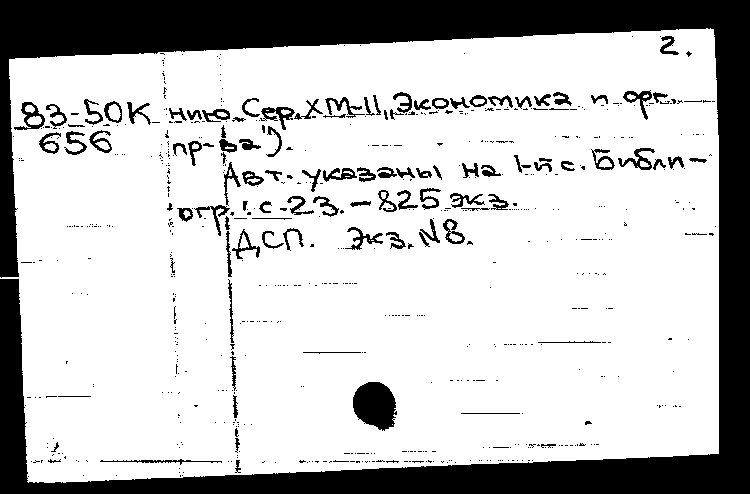 2.
83-50К нию. Сер. ХМ-11 „Экономика и орг.
656 пр-ва").
Авт. указаны на 1-й с. Библи-
огр.: с. 23. - 825 экз.
ДСП. Экз. N8.